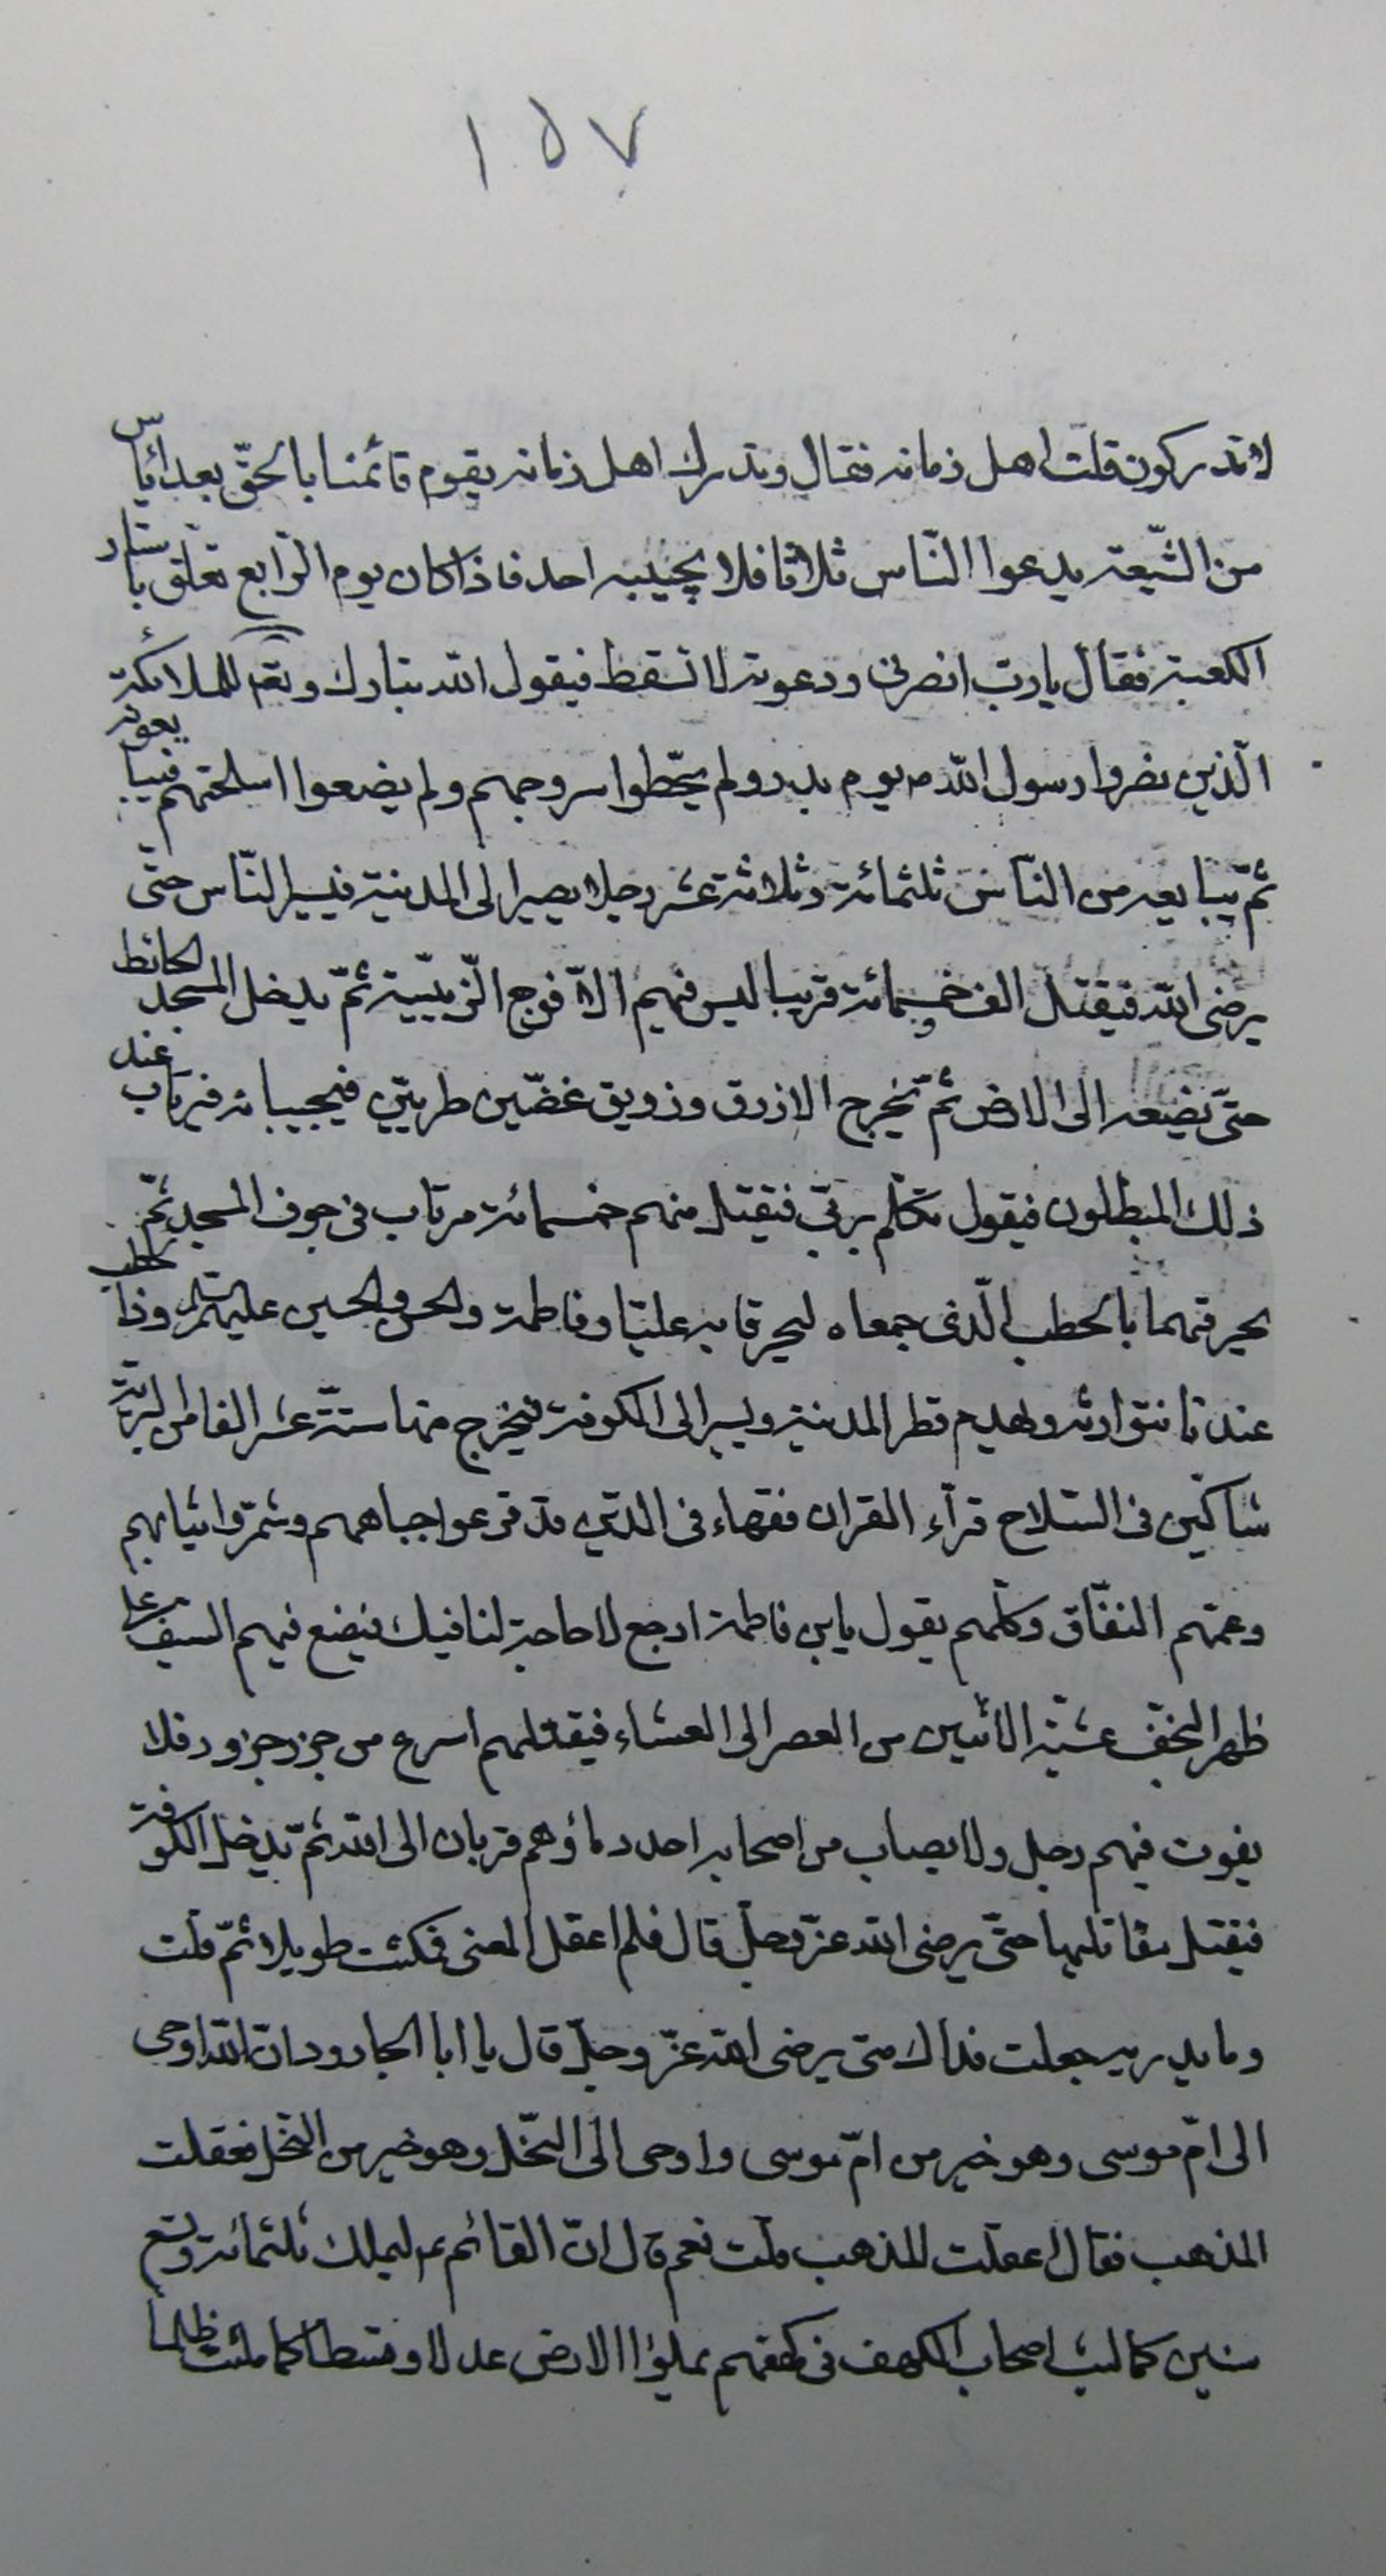 ١٥٧
لا تدركون قلت اهل زمانه فقال وتدرك اهل زمانه يقوم قائمنا بالحقّ بعد اياس
من الشّيعة يدعوا النّاس ثلاثا فلا يجيبه احد فاذا كان يوم الرّابع تعلق باستار
الكعبة فقال يا ربّ انصرني ودعوته لا تسقط فيقول الله تبارك وتعه للملائكة
الّذين نصروا رسول الله ص يوم بدر ولم يحّطوا سروجهم ولم يضعوا اسلحتهم فيبايعونه
ثمّ يبايعه من النّاس ثلثمائة وثلاثة عشر رجلا يصير الى المدينة فيسير النّاس حتّى
يرضى الله فيقتل الف وخمسمائة قريبا ليس فيهم الّا فوج الزّبيّية ثمّ يدخل المسجد الحائط
حتّى يضعه الى الارض ثمّ يخرج الازرق وزويق غضّين طريّين فيجيبانه فيرتاب عند
ذلك المبطلون فيقول تكلّم بربّي فيقتل منهم خمسمائة مرتاب في جوف المسجد ثمّ
يحرقهما بالحطب الّذى جمعاه ليحرقا به عليّا وفاطمة والحسن والحسين عليهم السلم وذا الحطب
عندنا نتوارثه ويهدم قطر المدينة ويسير الى الكوفة فيخرج منها ستّة عشر الفا من البرية
شاكّين فى السّلاح قرّاء القران فقهاء فى الدّين قد قرعوا جباههم وشمّروا ثيابهم
وعمّهم النّفاق وكلّهم يقول يابن فاطمة ارجع لا حاجة لنا فيك فيضع فيهم السّيف على
ظهر النجف عشيّة الاثنين من العصر الى العشاء فيقتلهم اسرع من جزر جزور فلا
يفوت فيهم رجل ولا يصاب من اصحابه احد دماؤهم قربان الى الله ثمّ يدخل الكوفة
فيقتل مقاتليها حتّى يرضى الله عزّ وجلّ قال فلم اعقل المعنى فمكثت طويلا ثمّ قلت
وما يدريه جعلت فداك متى يرضى الله عزّ وجلّ قال يا ابا الجارود انّ الله اوحى
الى امّ موسى وهو خير من امّ موسى واوحى الى النّحل وهو خير من النّحل فعقلت
المذهب فقال اعقلت المذهب قلت نعم قال انّ القائم ع ليملك ثلثمائة وتسع
سنين كما لبث اصحاب الكهف في كهفهم يملؤا الارض عدلا وقسطا كما ملئت ظلما